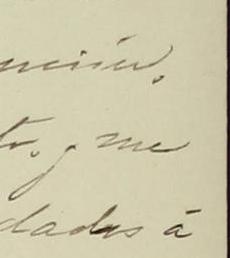 nción.
to, y me
dades á